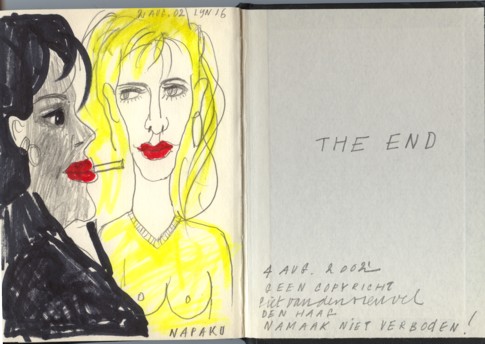 2 AUG. 02
NAPAKU
THE END
4 AUG. 2002
GEEN COPYRICHT
piet van den heuvel
DEN HAAG
NAMAAK NIET VERBODEN!